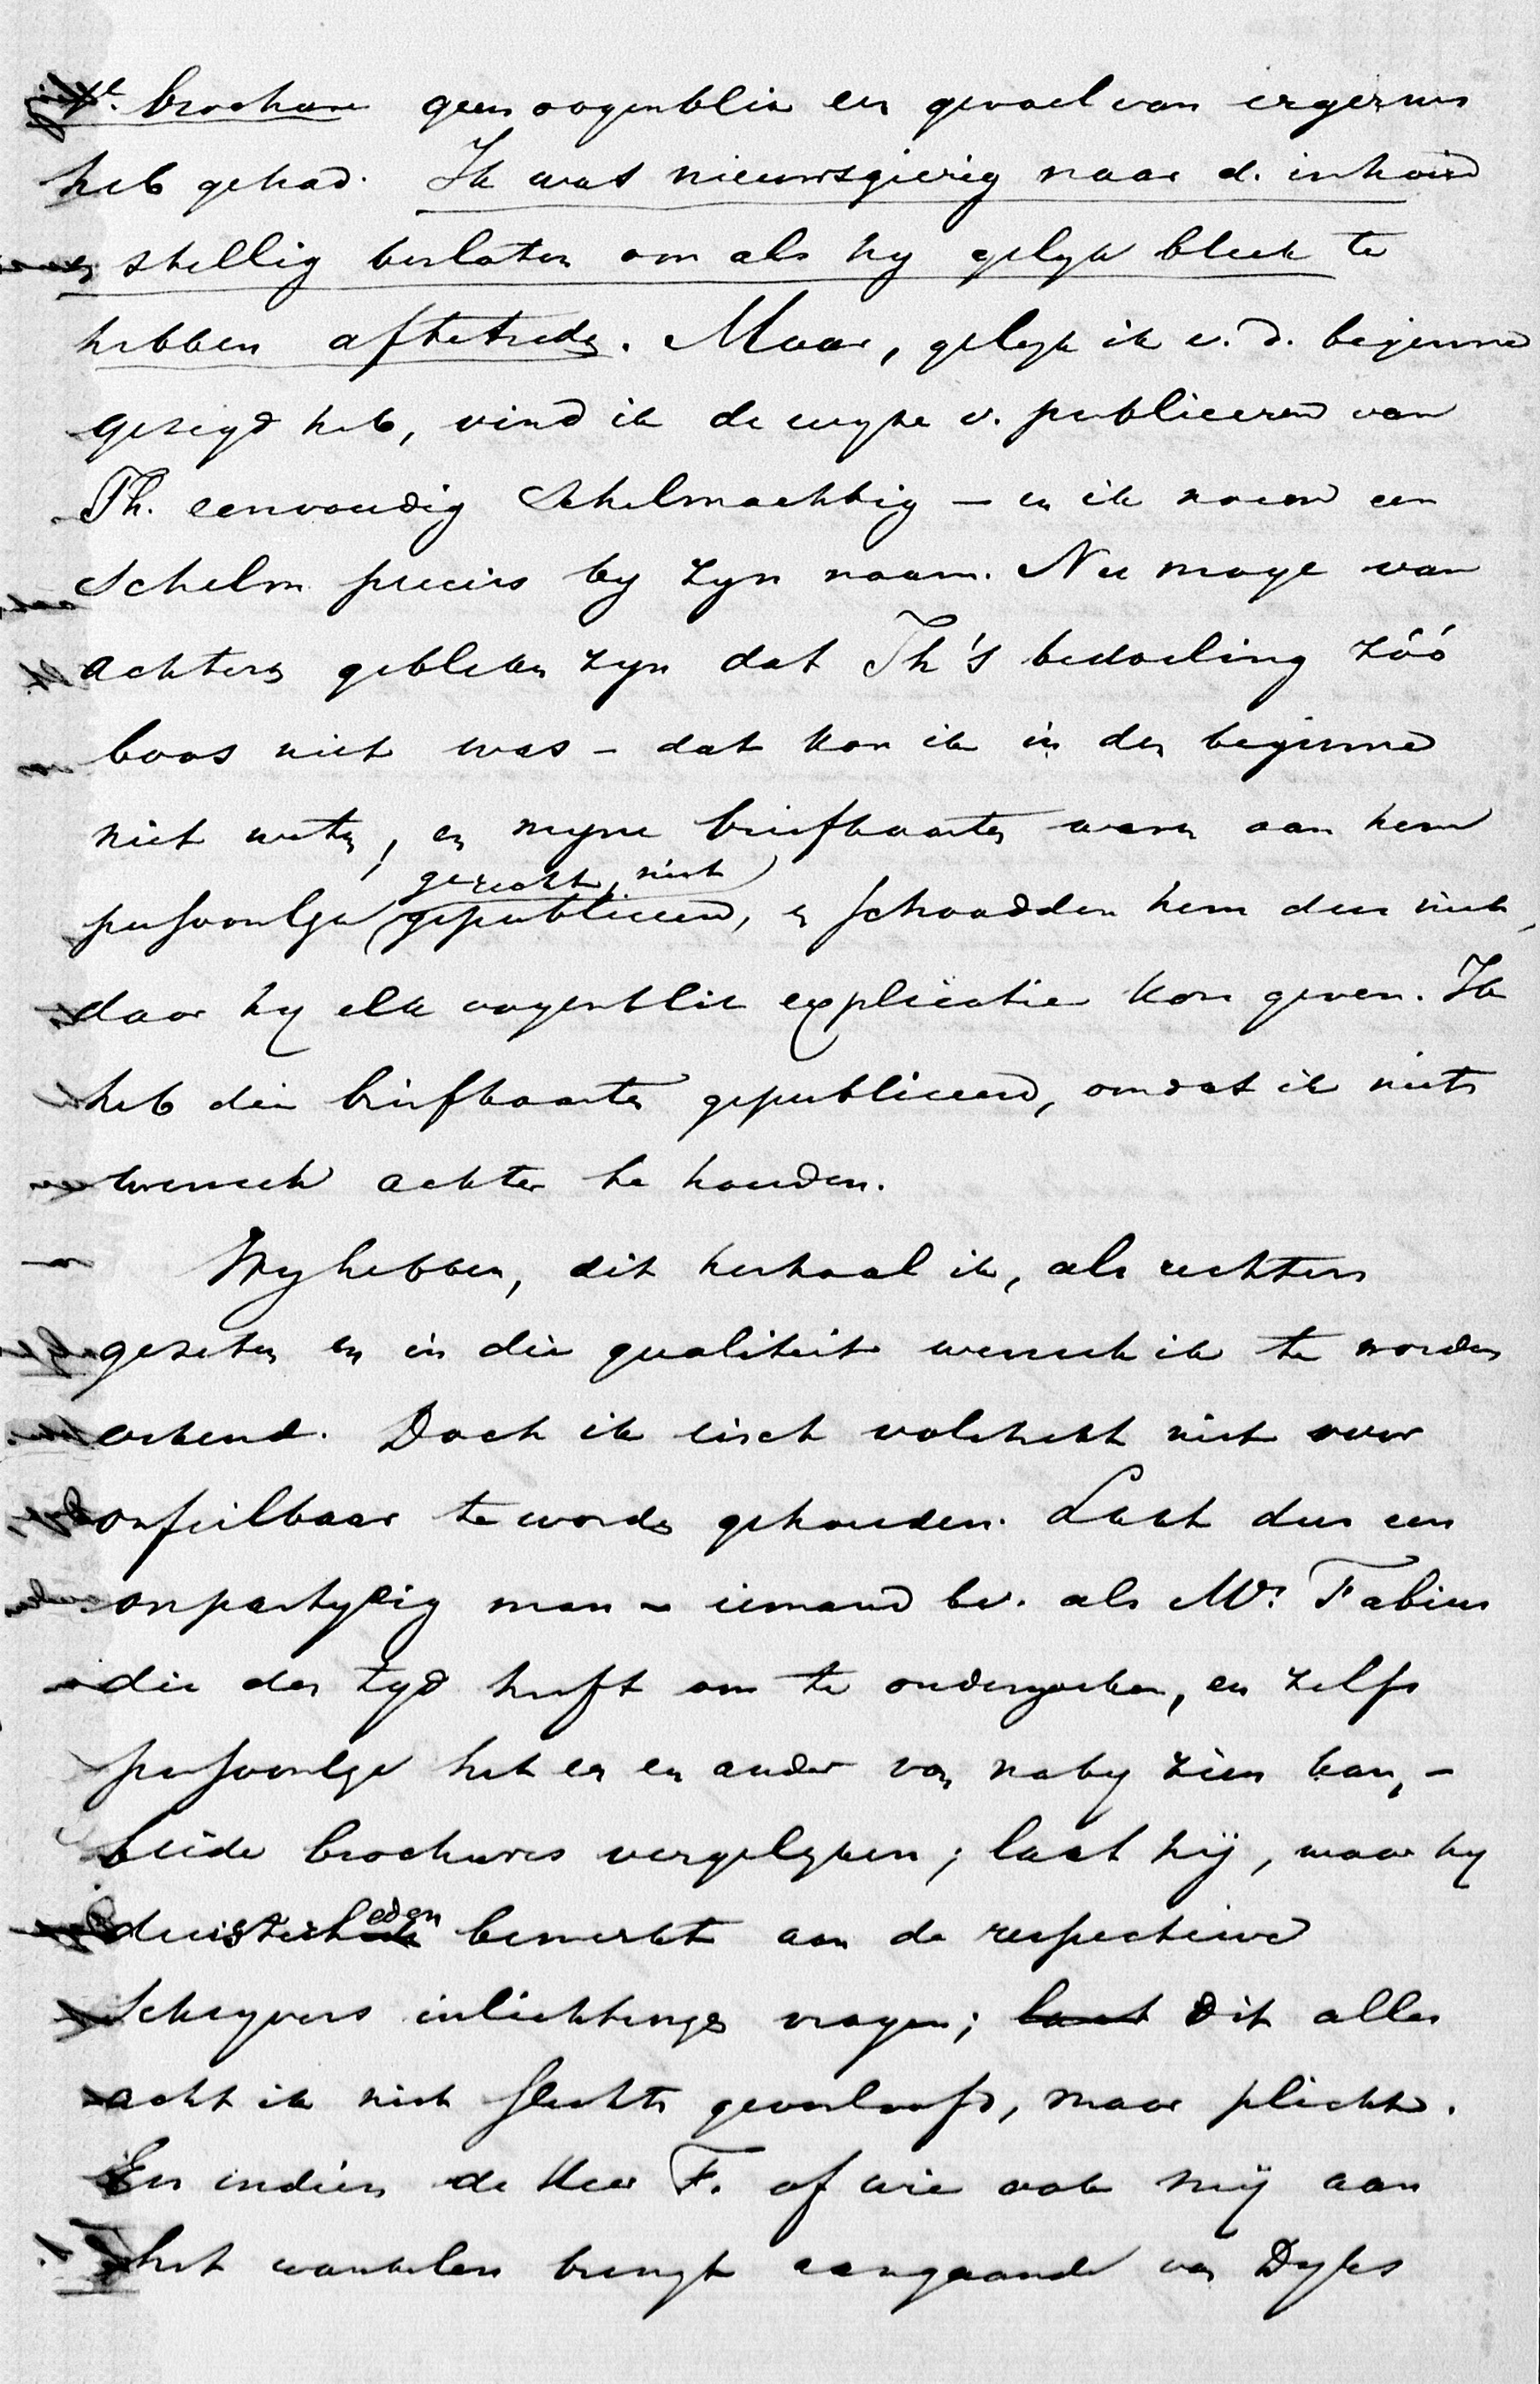 1e. brochure geen oogenblik een gevoel van ergernis
heb gehad. Ik was nieuwsgierig naar d. inhoud
en stellig besloten om als hy gelyk bleek te
hebben aftetreden. Maar, gelyk ik v. d. beginne
gezegd heb, vind ik de wyze v. publiceren van
Th. eenvoudig schelmachtig – en ik noem een
schelm precies by zyn naam. Nu moge van
achteren gebleken zyn dat Th's bedoeling zóó
boos niet was – dat kon ik in den beginne
niet weten, en myne briefkaarten waren aan hem
gericht, niet
persoonlyk gepubliceerd, en schaadden hem dus niet,
daar hy elk oogenblik explicatie kon geven. Ik
heb die briefkaarten gepubliceerd, omdat ik niets
wensch achter te houden.
Wy hebben, dit herhaal ik, als rechters
gezeten en in die qualiteit wensch ik te worden
erkend. Doch ik eisch volstrekt niet voor
onfeilbaar te worden gehouden. Laat dus een
onpartydig man – iemand bv. als Mr. Fabius
die den tyd heeft om te onderzoeken, en zelfs
persoonlyk het een en ander van naby zien kan, –
beide brochures vergelyken; laat hij, waar hy
duisterheden bemerkt aan de respectieve
schryvers inlichtingen vragen; laat dit alles
acht ik niet slechts geoorloofd, maar plicht.
En indien de Heer F. of wie ook mij aan
het wankelen brengt aangaande van Dyks